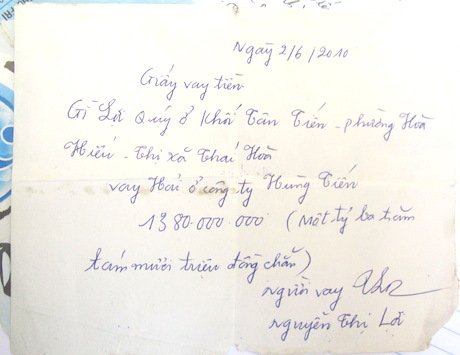 Ngày 2/6/2010
Giấy vay tiền
Gì Lợi Quý ở Khối Tân Tiến - phường Hoà
Hiếu - thị xã Thái Hoà
vay Hải ở công ty Hùng Tiến
1380.000.000 (Một tỷ ba trăm
tám mươi triệu đồng chẵn)
người vay
Nguyễn Thị Lợi